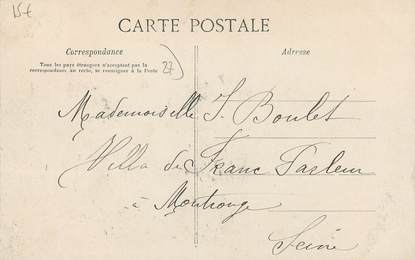 15€
CARTE POSTALE
Correspondance
Adresse
Tous les pays étrangers n'acceptant pas la
correspondance au recto, se renseigner à la Poste
27
Mademoiselle J. Boulet
Villa de Franc
à Montrouge
Seine